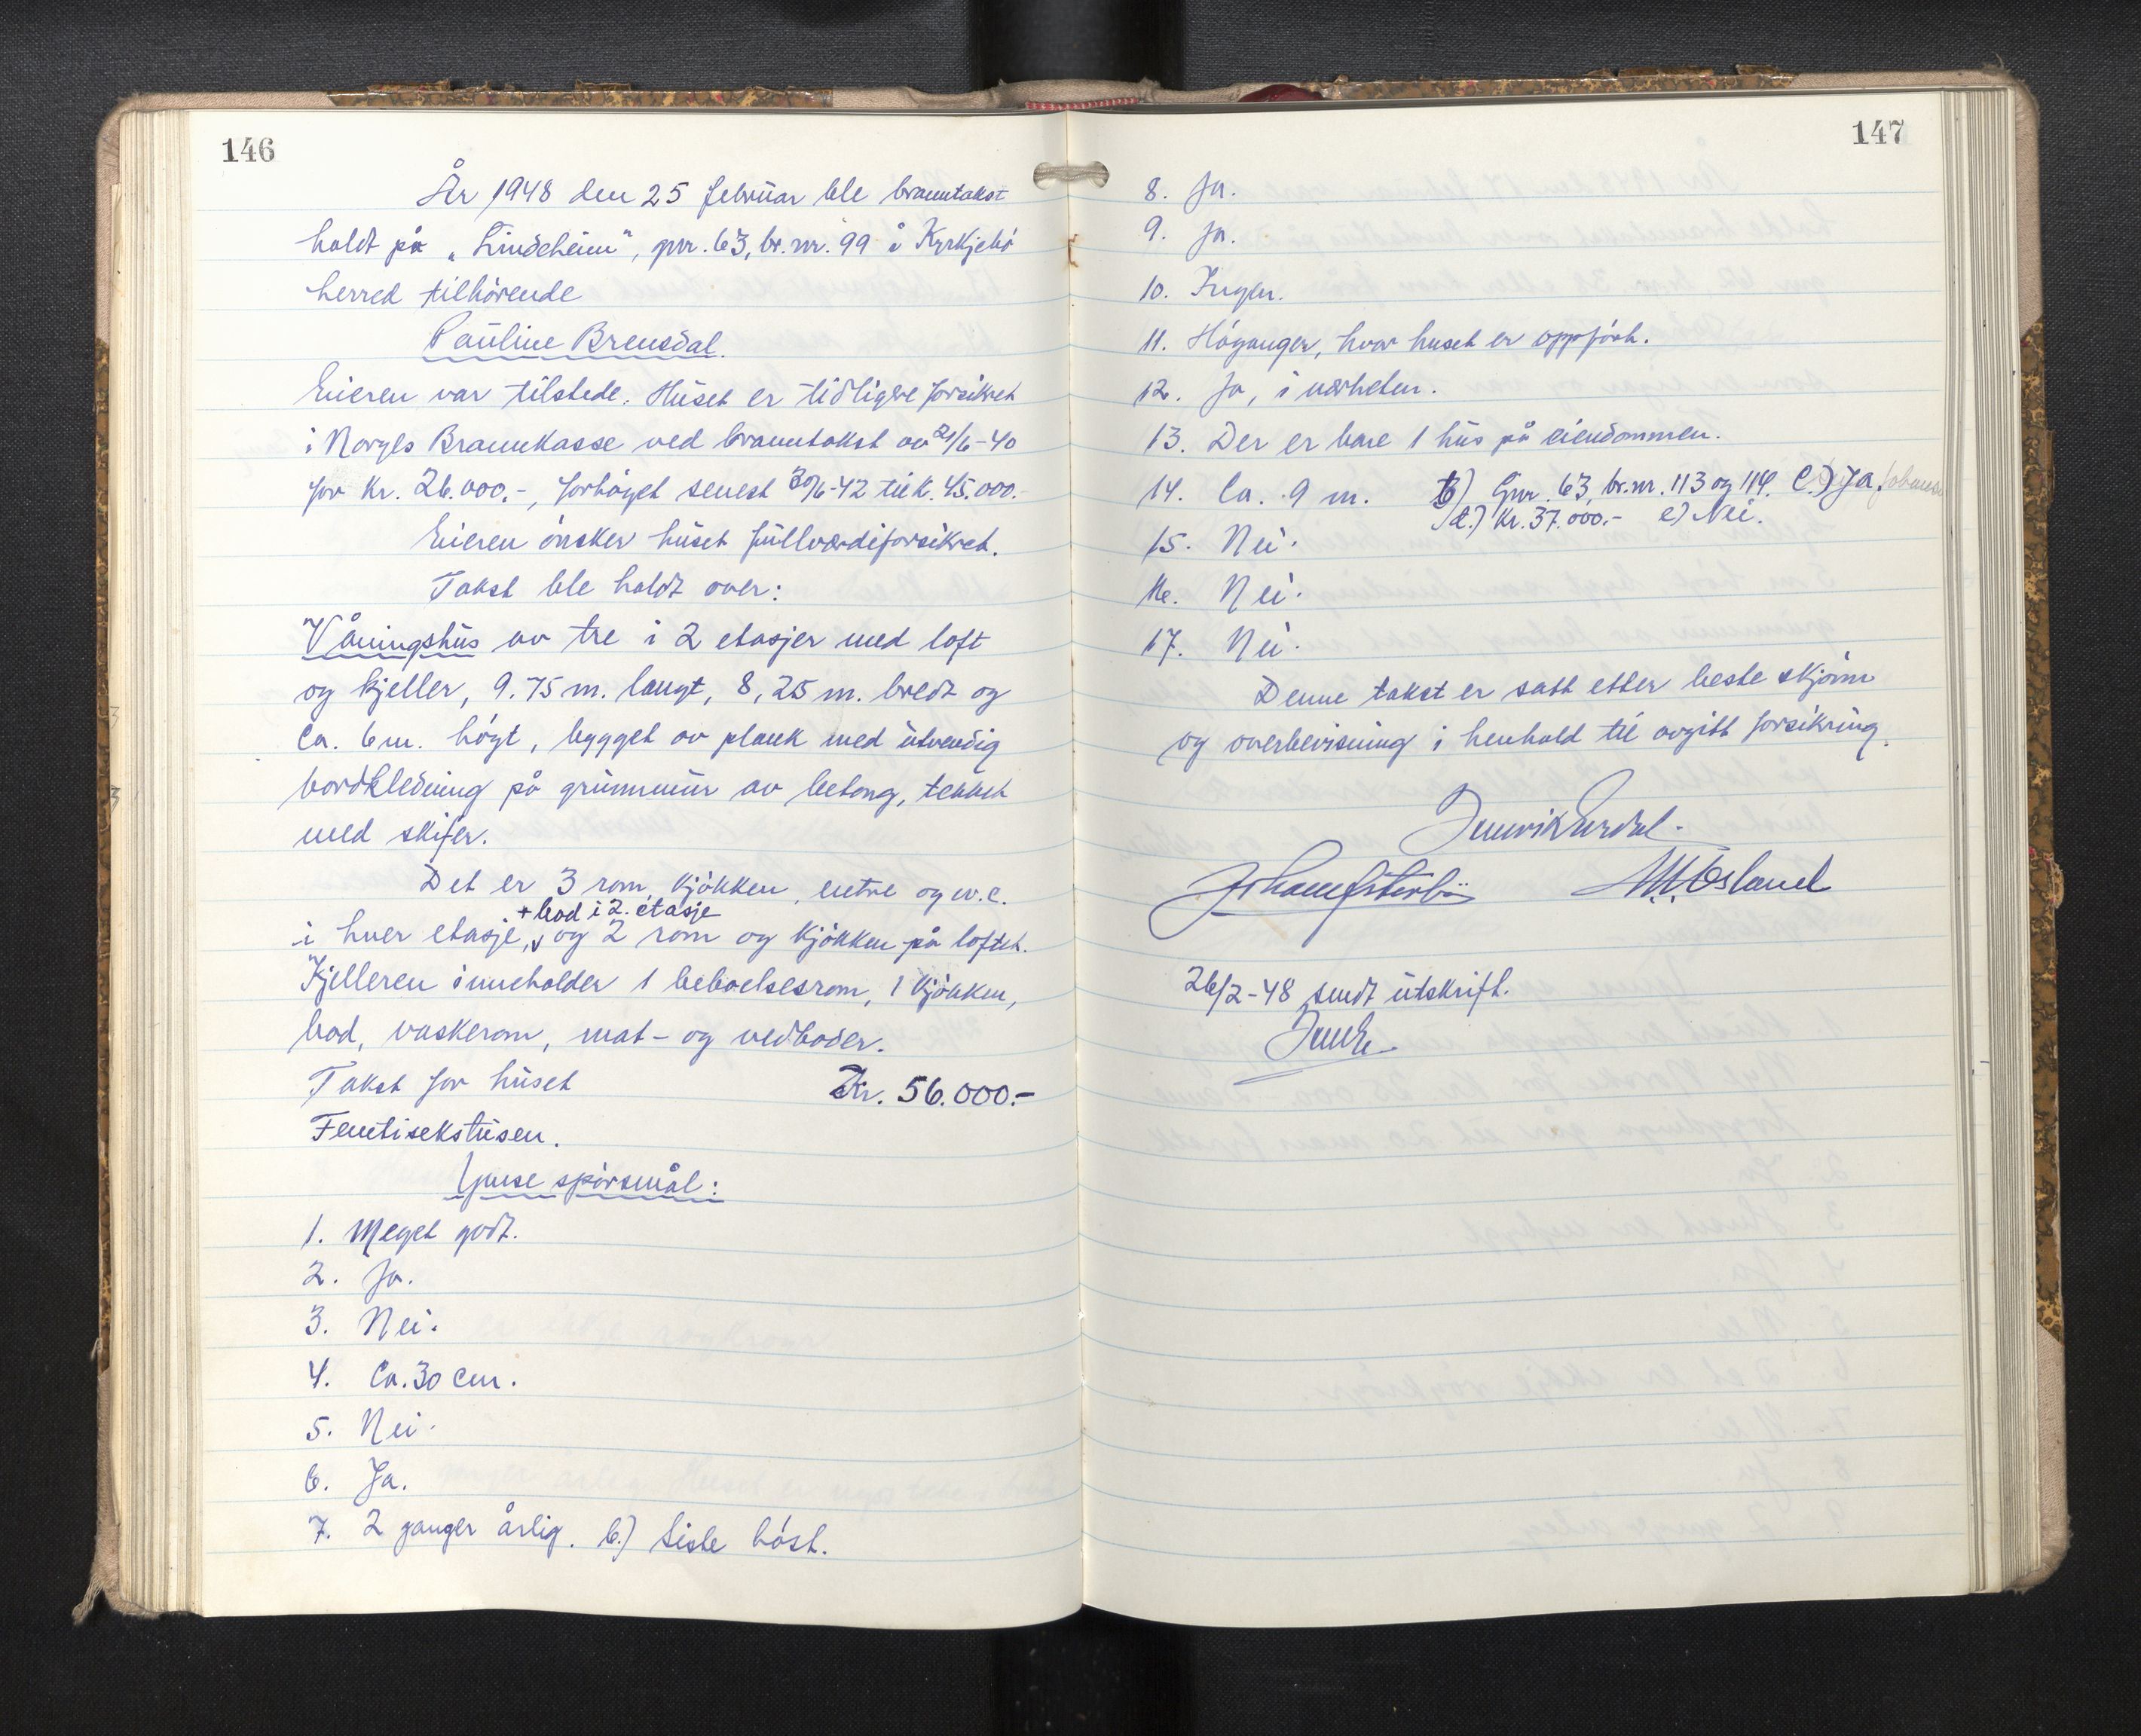 146
År 1948 den 25 februar ble branntakst
holdt på „Lindeheim", gnr. 63, br. nr. 99 i Kyrkjebø
herred tilhørende
Pauline Brensdal.
Eieren var tilstede. Huset er tidligere forsikret
i Norges Brannkasse ved branntakst av 21/6-40
for kr. 26.000.-, forhøyet senest 30/6-42 til k. 45.000.-
Eieren ønsker huset fullverdiforsikret.
Takst ble holdt over:
Våningshus av tre i 2 etasjer med loft
og kjeller, 9.75 m. langt, 8,25 m. bredt og
ca. 6 m. høgt, bygget av plank med utvendig
bordkledning på grunnmur av betong, tekket
med skifer.
Det er 3 rom, kjøkken, entre og w.c.
+ bod i 2. etasje
i hver etasje, og 2 rom og kjøkken på loftet.
Kjelleren inneholder 1 beboelsesrom, 1 kjøkken,
bod, vaskerom, mat- og vedboder.
Takst for huset Kr. 56.000.-
Femtisekstusen.
Ymse spørsmål:
1. Meget godt.
2. Ja.
3. Nei.
4. Ca. 30 cm.
5. Nei.
6. Ja.
7. 2 ganger årlig. b.) Siste høst.
147
8. Ja.
9. Ja.
10. Ingen.
11. Høyanger, hvor huset er oppført.
12. Ja, i nærheten.
13. Der er bare 1 hus på eiendommen.
14. Ca. 9 m. b) Gnr. 63, br. nr. 113 og 114. c.) Ja.
d.) Kr. 37.000.- e) Nei.
15. Nei.
16. Nei.
17. Nei.
Denne takst er satt etter beste skjønn
og overbevisning i henhold til avgitt forsikring.
26/2-48 sendt utskrift.